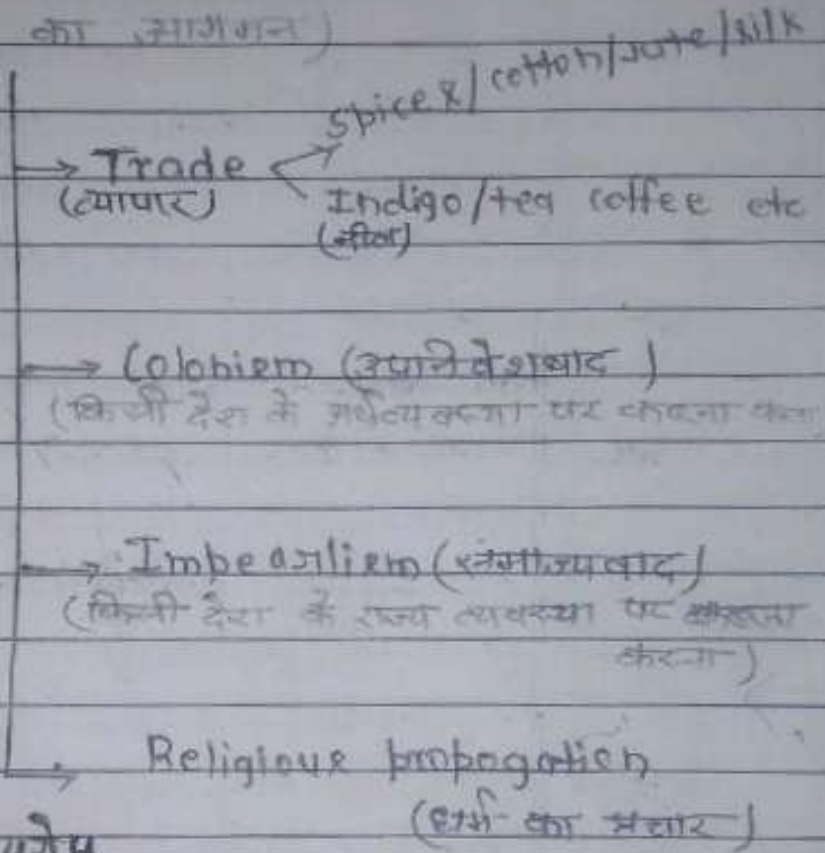 का आगमन)
Spices/cotton/jute/silk
→ Trade
(व्यापार)
Indigo/tea coffee etc
(नील)
→ Coloniem (उपनिवेशवाद)
(किसी देश के अर्थव्यवस्था पर कब्जा करना
→ Imbearliem (साम्राज्यवाद)
(किसी देश के राज्य व्यवस्था पर कब्जा
करना)
Religious propogation
(धर्म का प्रचार)